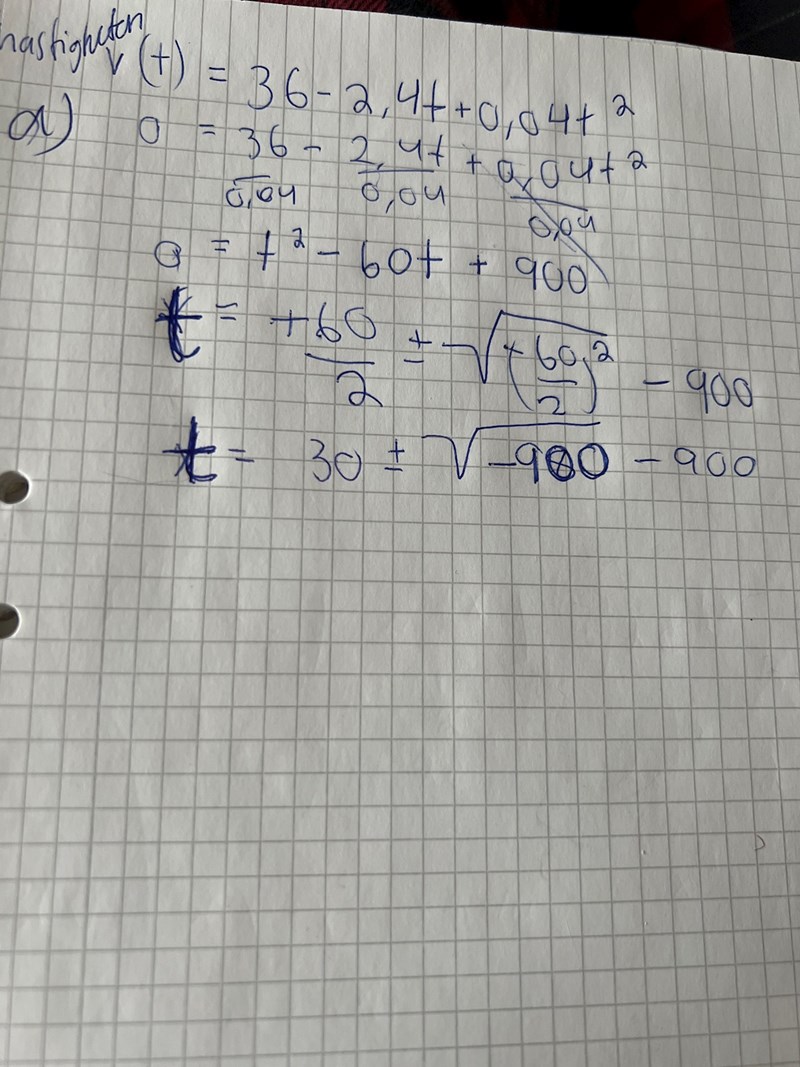 hastigheten
v(t) = 36 - 2,4t + 0,04t²
a) 0 = 36/0,04 - 2,4t/0,04 + 0,04t²/0,04
0 = t² - 60t + 900
t = +60/2 ± √(+60/2)² - 900
t = 30 ± √-900 - 900